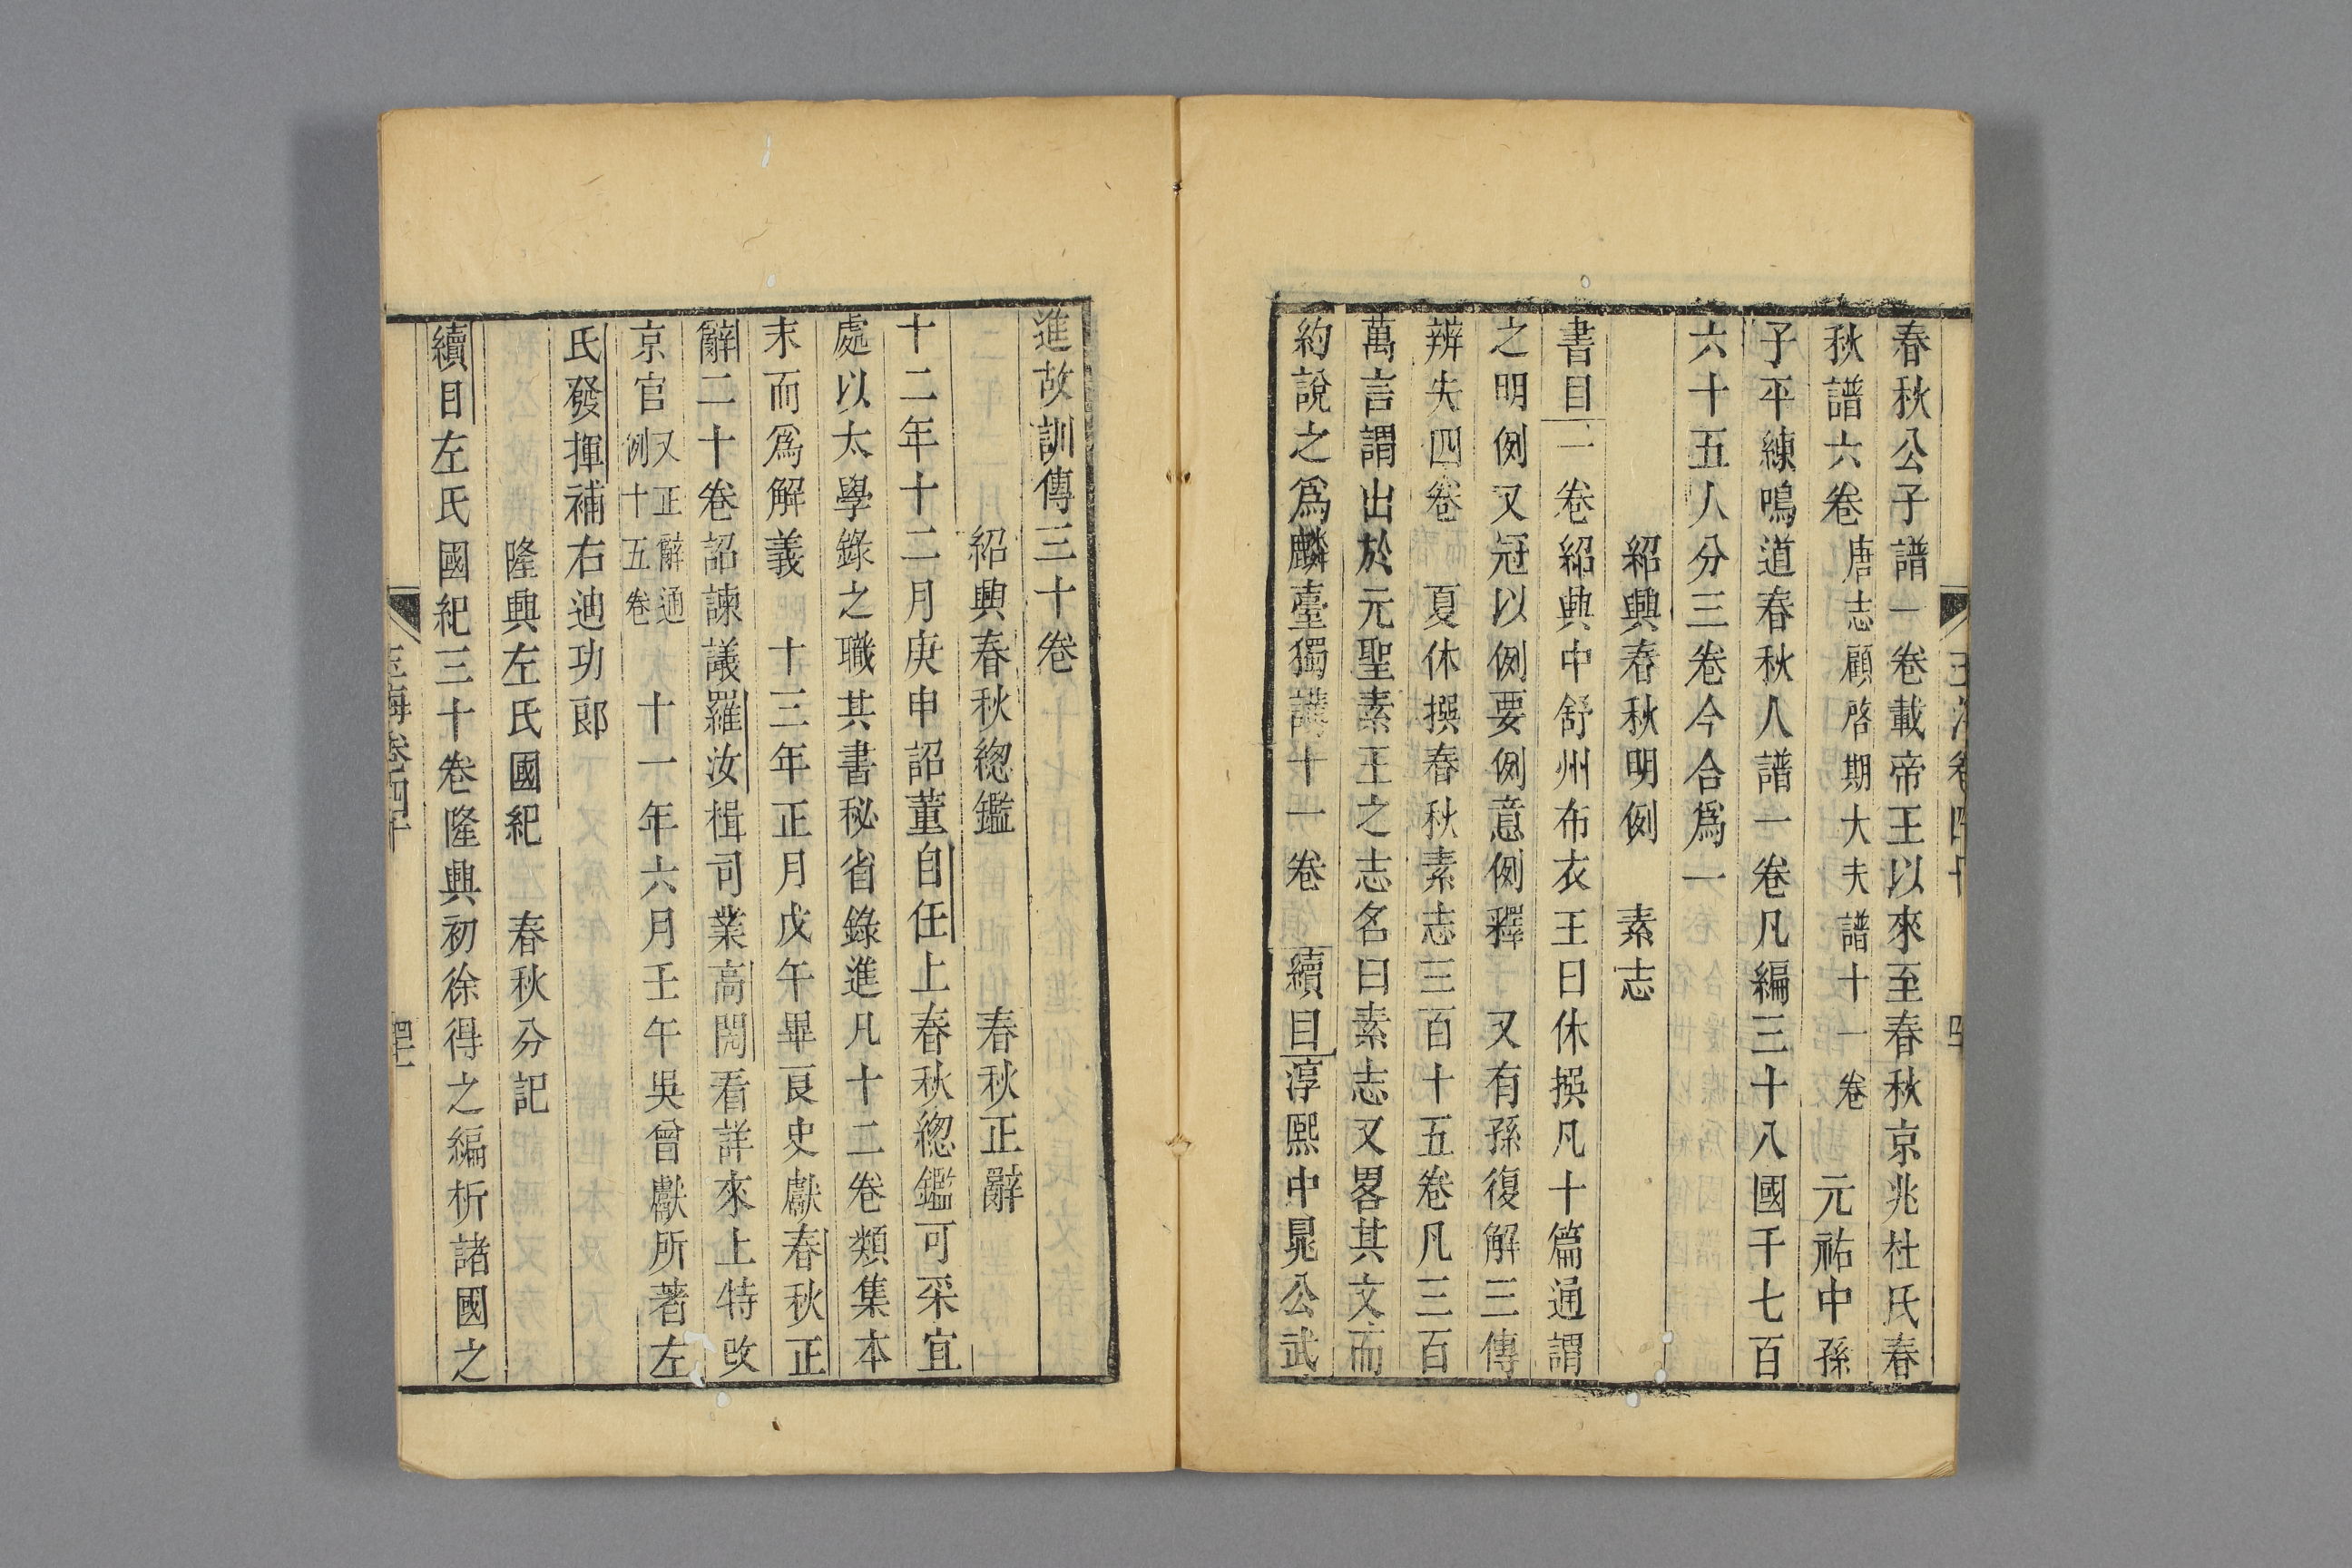 春秋公子譜一卷載帝王以來至春秋京兆杜氏春
秋譜六卷唐志顧啓期大夫譜十一卷 元祐中孫
子平練鳴道春秋人譜一卷凡編三十八國千七百
六十五人分三卷今合爲一
紹興春秋明例 素志
書目一卷紹興中舒州布衣王日休撰凡十篇通謂
之明例又冠以例要例意例釋 又有孫復解三傳
辨失四卷 夏休撰春秋素志三百十五卷凡三百
萬言謂出於元聖素王之志名曰素志又畧其文而
約說之爲麟臺獨講十一卷 續目淳熙中晁公武
進故訓傳三十卷
紹興春秋總鑑 春秋正辭
十二年十二月庚申詔董自任上春秋總鑑可采宜
處以太學錄之職其書秘省錄進凡十二卷類集本
末而爲解義 十三年正月戊午畢良史獻春秋正
辭二十卷詔諫議羅汝楫司業高閌看詳來上特改
京官又正辭通例十五卷 十一年六月壬午吳曾獻所著左
氏發揮補右迪功郎
隆興左氏國紀 春秋分記
續目左氏國紀三十卷隆興初徐得之編析諸國之
玉海卷四十